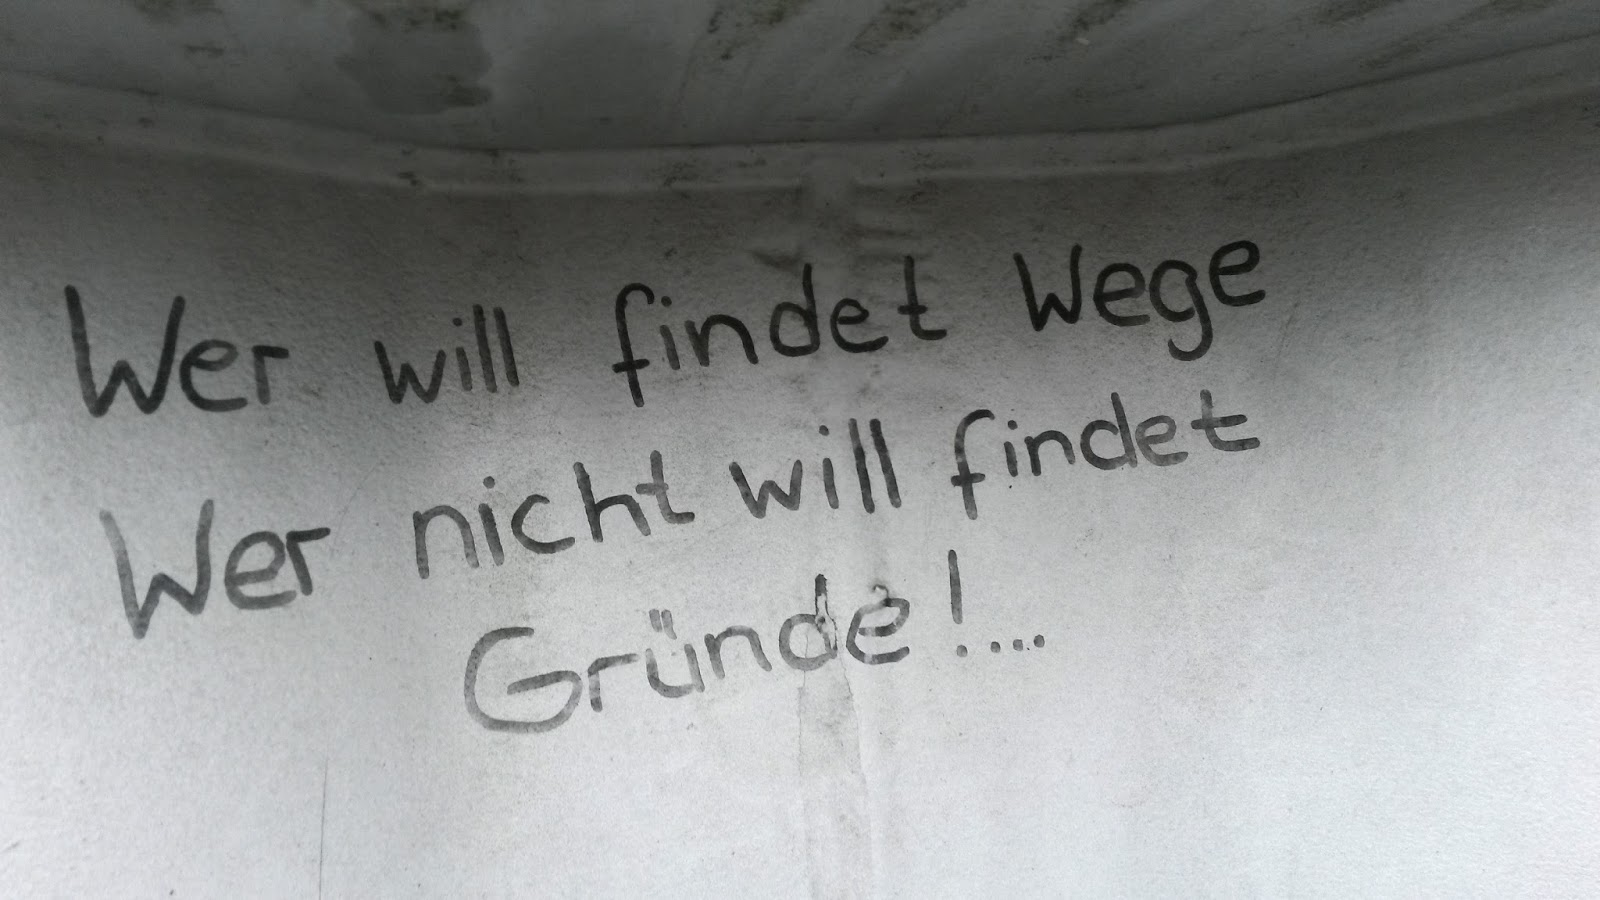 Wer will findet Wege
Wer nicht will findet
Gründe!....